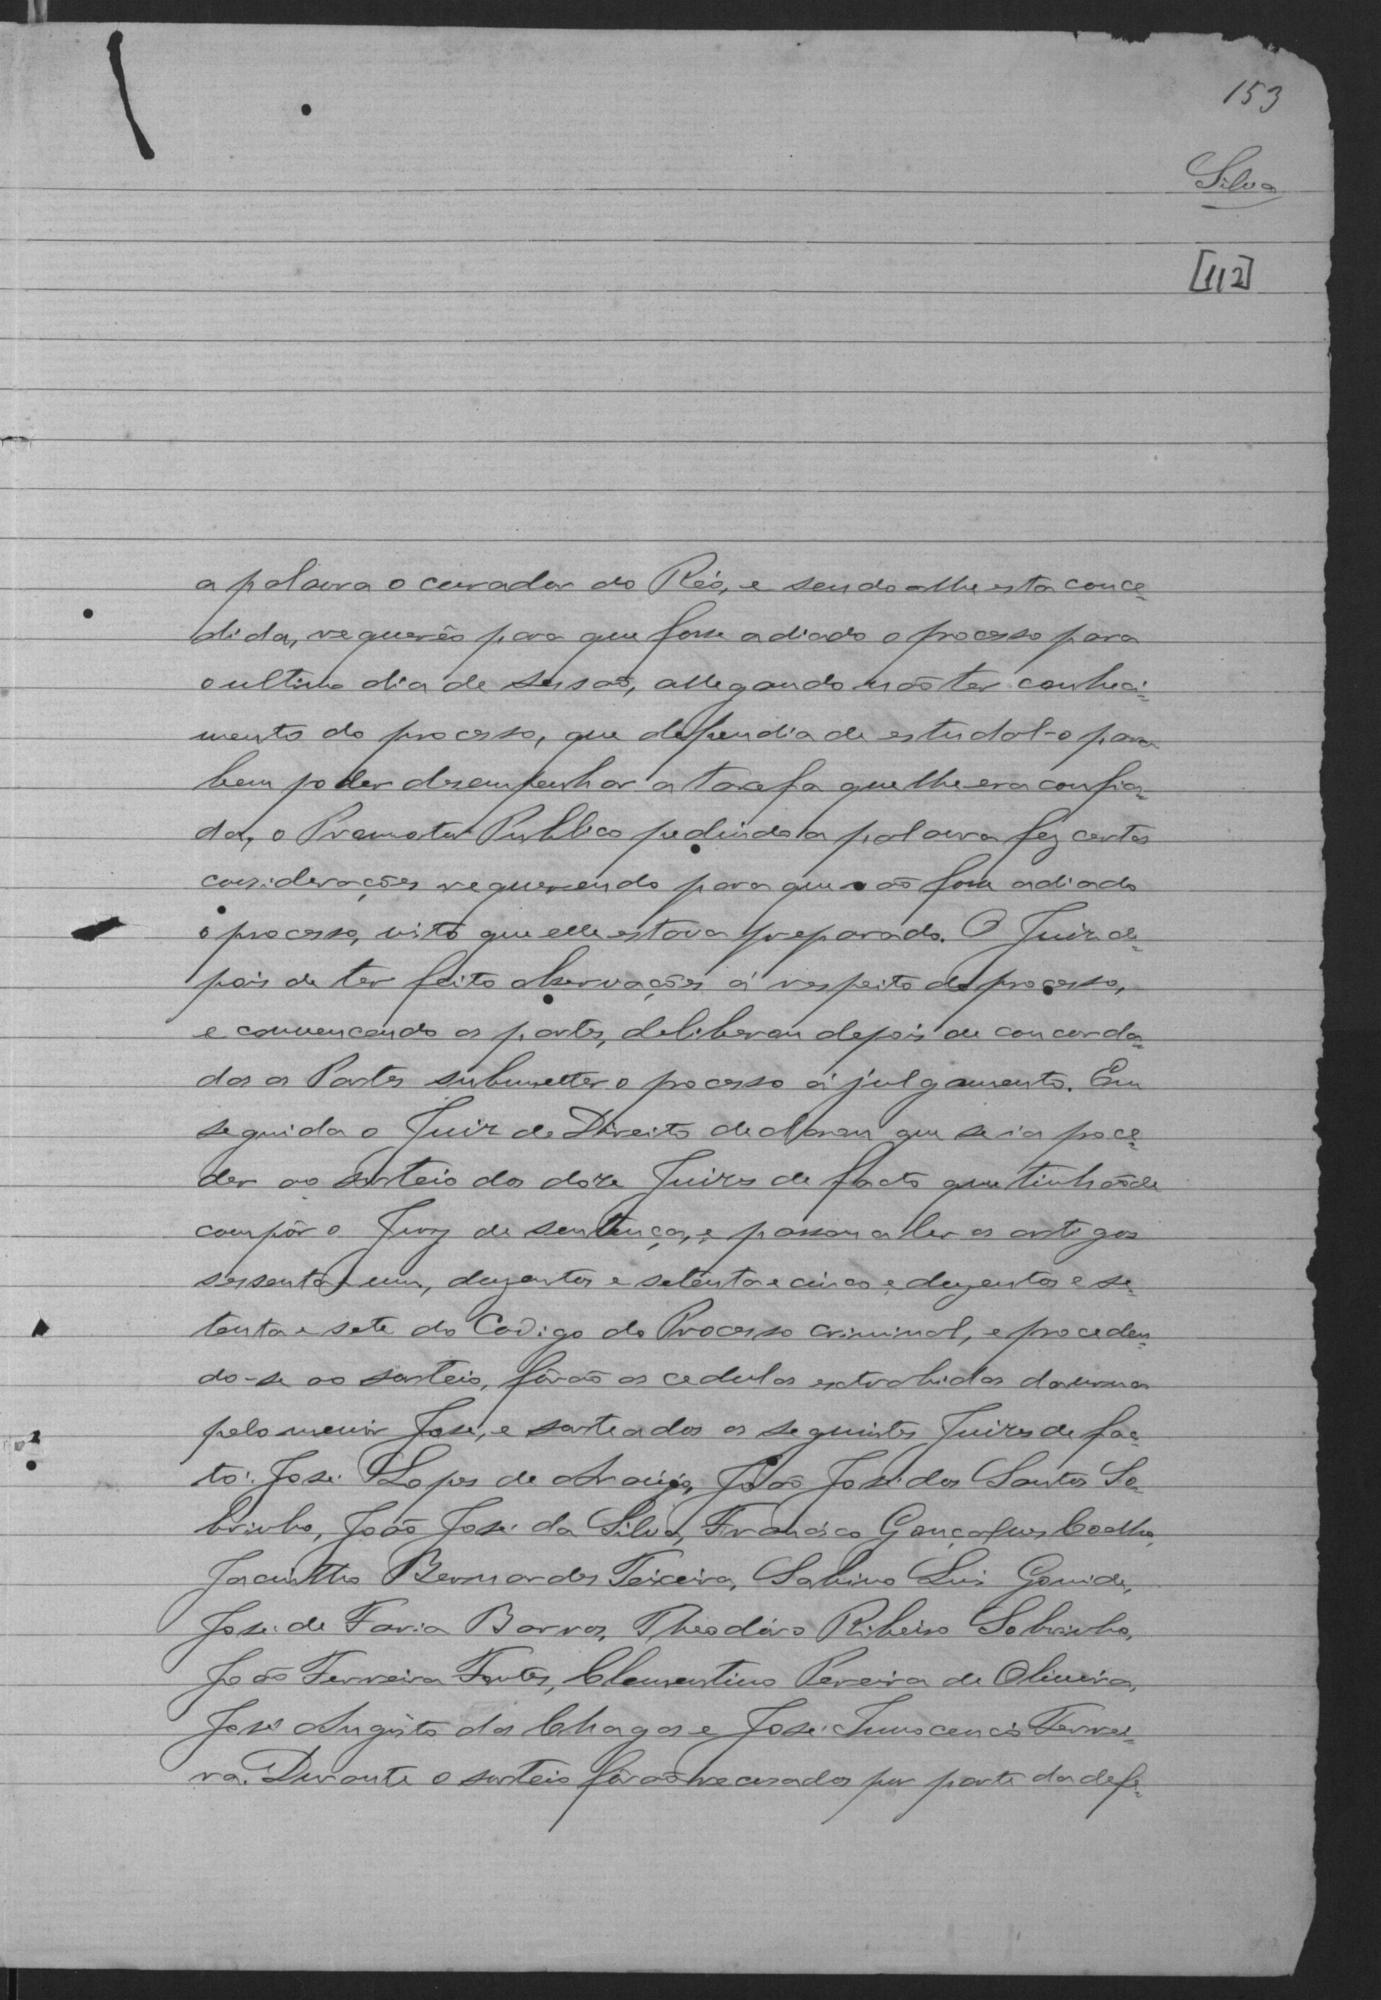 153
Silva
[112]
a palavra o curador do Réo, e sendo-lhe esta conce-
dida, requerêo para que fosse adiado o processo para
o ultimo dia de sessaõ, allegando naõ ter conheci-
mento do processo, que dependia de estudal-o para
bem poder desempenhar a tarefa que lhe era confia-
da, o Promotor Publico pedindo a palavra fez certas
considerações requerendo para que naõ fosse adiado
o processo, visto que elle estava preparado. O Juiz de-
pois de ter feito observações á respeito do processo,
e convencendo as partes, deliberou depois de concorda-
das as Partes submetter o processo á julgamento. Em
seguida o Juiz de Direito declarou que se ia proce-
der ao sorteio dos doze Juizes de facto que tinhaõ de
compôr o Jury de sentença, e passou a ler os artigos
sessenta e um, duzentos e setenta e cinco e duzentos e se-
tenta e sete do Codigo do Processo criminal, e proceden-
do-se ao sorteio, fôraõ as cedulas extrahidas da urna
pelo menor José, e sorteados os seguintes Juizes de fac-
to: José Lopes de Araújo, João José dos Santos So-
brinho, João José da Silva, Francisco Gonçalves Coelho,
Jacintho Bernardes Teixeira, Sabino Luis Gomide,
José de Faria Barros, Theodóro Ribeiro Sobrinho,
João Ferreira Fontes, Clementino Pereira de Oliveira,
José Augusto das Chagas e José Innocencio Ferrei-
ra. Durante o sorteio fôraõ recusados por parte da defe-